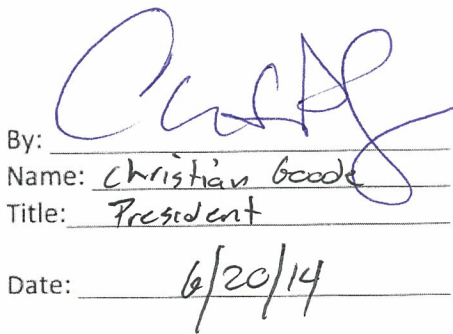 By:
Name: Christian Goode
Title: President
Date: 6/20/14